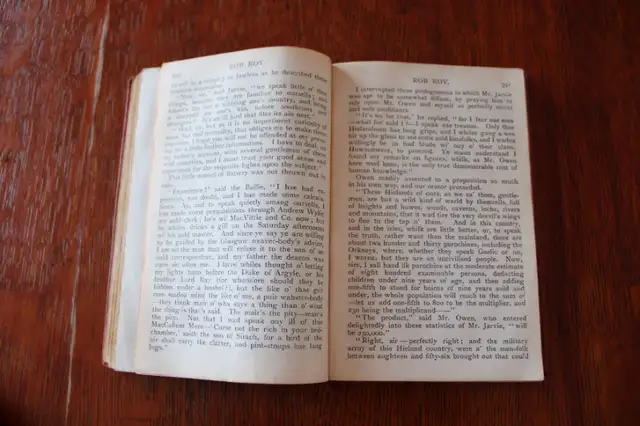 ROB ROY
as lawless as he described them
said Jarvie, "we speak little o' thae
things, because they are familiar to oursells; and
country, and
before
it's an ill bird that files its ain nest."
"Well, sir, but as it is no impertinent curiosity of
mine, but real necessity, that obliges me to make these
inquiries, I hope you will not be offended at my
me a little farther information. I have to deal, on
my father's account, with several gentlemen of these
wild countries, and I must trust your good sense and
experience for the requisite lights upon the subject."
This little morsel of flattery was not thrown out in
vain.
"Experience!" said the Bailie, "I hae had
experience, nae doubt, and I hae made some
Ay, and to speak quietly amang oursells, I
hae made some perquisitions through Andrew Wylie
my auld clerk; he's at MacVittie and Co. now; but
he whiles drinks a gill on the Saturday afternoons
wi' his auld master. And since ye say ye are willing
to be guided by the Glasgow weaver-body's advice,
I am no the man that will refuse it to the son of an
auld correspondent, and my father the deacon was
nane sic afore me. I have whiles thought o' letting
my lights burn before the Duke of Argyle, or his
brother Lord Ilay (for wherefore should they be
hidden under a bushel?), but the like o' thae grit
men wadna mind the like o' me, a puir wabster-body
—they think mair o' wha says a thing than o' what
the thing is that's said. The mair's the pity—mair's
the pity. Not that I wad speak ony ill of this
MacCallum More—'Curse not the rich in your bed-
chamber,' saith the son of Sirach, 'for a bird of the
air shall carry the clatter, and pint-stoups hae lang
lugs.'"
ROB ROY.
I interrupted these prolegomena, in which Mr. Jarvie
was apt to be somewhat diffuse, by praying him to
rely upon Mr. Owen and myself as perfectly secret
and safe confidants.
"It's no for that," he replied, "for I fear nae man
—what for suld I?—I speak nae treason. Only thae
Hielandmen hae lang grips, and I whiles gang a wee
bit up the glens to see some auld kinsfolks, and I wadna
willingly be in bad blude wi' ony o' their clans.
Howsumever, to proceed. Ye maun understand I
found my remarks on figures, whilk, as Mr. Owen
here weel kens, is the only true demonstrable root of
human knowledge."
Owen readily assented to a proposition so much
in his own way, and our orator proceeded.
"These Hielands of ours, as we ca' them, gentle-
men, are but a wild kind of warld by themsells, full
of heights and howes, woods, caverns, lochs, rivers
and mountains, that it wad tire the very deevil's wings
to flee to the tap o' them. And in this country,
and in the isles, whilk are little better, or, to speak
the truth, rather waur than the mainland, there are
about twa hunder and thirty parochines, including the
Orkneys, where, whether they speak Gaelic or no,
I wotna, but they are an uncivilised people. Now,
sirs, I sall haud ilk parochine at the moderate estimate
of eight hundred examinable persons, deducting
children under nine years of age, and then adding
one-fifth to stand for bairns of nine years auld and
under, the whole population will reach to the sum o'
—let us add one-fifth to 800 to be the multiplier, and
230 being the multiplicand——"
"The product," said Mr. Owen, who entered
delightedly into these statistics of Mr. Jarvie, "will
be 230,000."
"Right, sir—perfectly right; and the military
array of this Hieland country, were a' the men-folk
between aughteen and fifty-six brought out that could